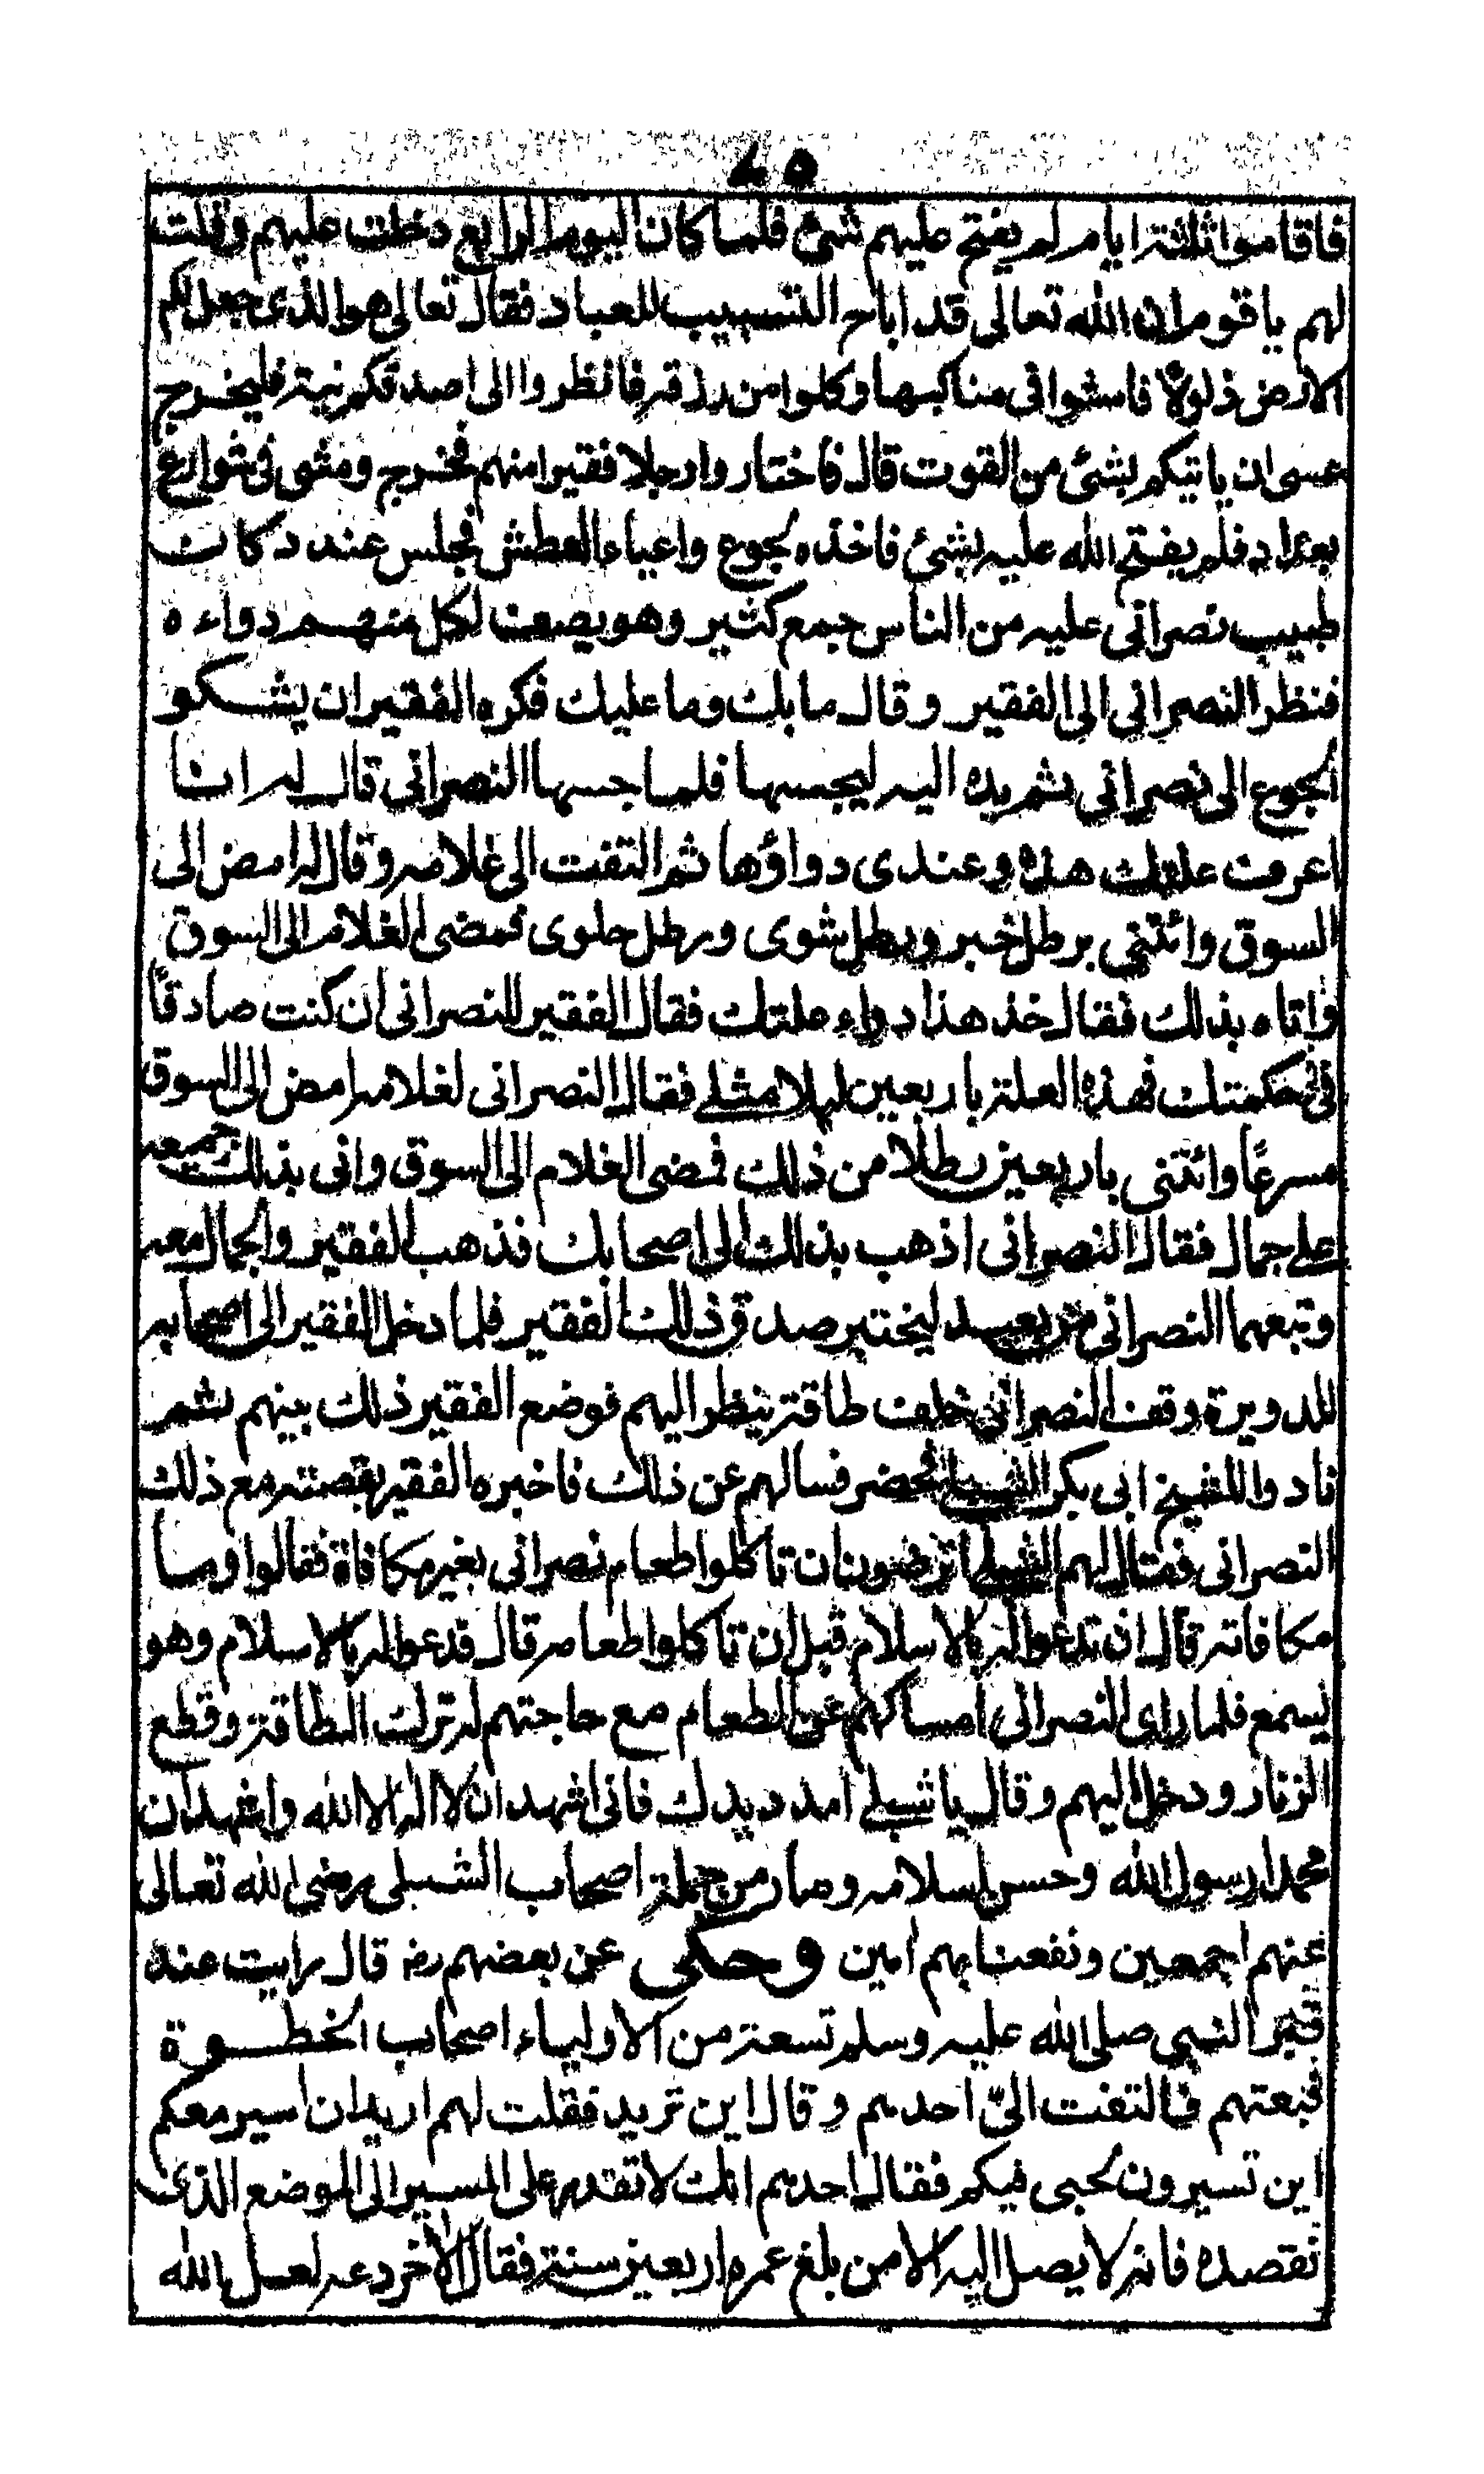 ٢٥
فاقاموا ثلثة ايام لم يفتح عليهم شئ فلما كان اليوم الرابع دخلت عليهم وقلت
لهم يا قوم ان الله تعالى قد اباح التسبيب للعباد فقال تعالى هو الذى جعل لكم
الارض ذلولا فامشوا فى مناكبها وكلوا من رزقه فانظروا الى اصدقكم نية فليخرج
عسى ان ياتيكم بشئ من القوت قال فاختاروا رجلا فقيرا منهم فخرج ومشى فى شوارع
بغداد فلم يفتح الله عليه بشئ فاخذه الجوع واعياه العطش فجلس عند دكان
طبيب نصرانى عليه من الناس جمع كثير وهو يصف لكل منهم دواءه
فنظر النصرانى الى الفقير وقال ما بك وما عليك فكره الفقير ان يشكو
الجوع الى نصرانى ثم يده اليه ليجسها فلما جسها النصرانى قال له انا
اعرف علتك هذه وعندى دواؤها ثم التفت الى غلامه وقال له امض الى
السوق وائتنى برطل خبز ورطل شوى ورطل حلوى فمضى الغلام الى السوق
واتاه بذلك فقال خذ هذا دواء علتك فقال الفقير للنصرانى ان كنت صادقًا
فى حكمتك فهذه العلة باربعين رجلا مثلى فقال النصرانى لغلامه امض الى السوق
مسرعًا وائتنى باربعين رطلا من ذلك فمضى الغلام الى السوق واتى بذلك جميعه
على جمال فقال النصرانى اذهب بذلك الى اصحابك فذهب الفقير والجمال معه
وتبعهما النصرانى من بعيد ليختبر صدق ذلك الفقير فلما دخل الفقير الى اصحابه
للدويرة وقف النصرانى خلف طاقة ينظر اليهم فوضع الفقير ذلك بينهم ثم
نادوا للشيخ ابى بكر الشبلى فحضر فسالهم عن ذلك فاخبره الفقير بقصته مع ذلك
النصرانى فقال لهم الشبلى اترضون ان تاكلوا طعام نصرانى بغير مكافاة فقالوا وما
مكافاته قال ان تدعوا له بالاسلام قبل ان تاكلوا طعامه قال فدعوا له بالاسلام وهو
يسمع فلما راى النصرانى امساكهم عن الطعام مع حاجتهم له ترك الطاقة وقطع
الزنار ودخل اليهم وقال يا شبلى امدد يدك فانى اشهد ان لا اله الا الله واشهد ان
محمدا رسول الله وحسن اسلامه وصار من جملة اصحاب الشبلى رضى الله تعالى
عنهم اجمعين ونفعنا بهم امين وحكى عن بعضهم رضه قال رايت عند
قبر النبى صلى الله عليه وسلم تسعة من الاولياء اصحاب الخطوة
فتبعتهم فالتفت الىّ احدهم وقال اين تريد فقلت لهم اريد ان اسير معكم
اين تسيرون لحبى فيكم فقال احدهم انك لا تقدر على المسير الى الموضع الذى
نقصده فانه لا يصل اليه الا من بلغ عمره اربعين سنة فقال الاخر دعه لعل الله